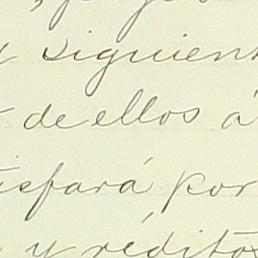 siguient
de ellos á
isfará por
y réditos